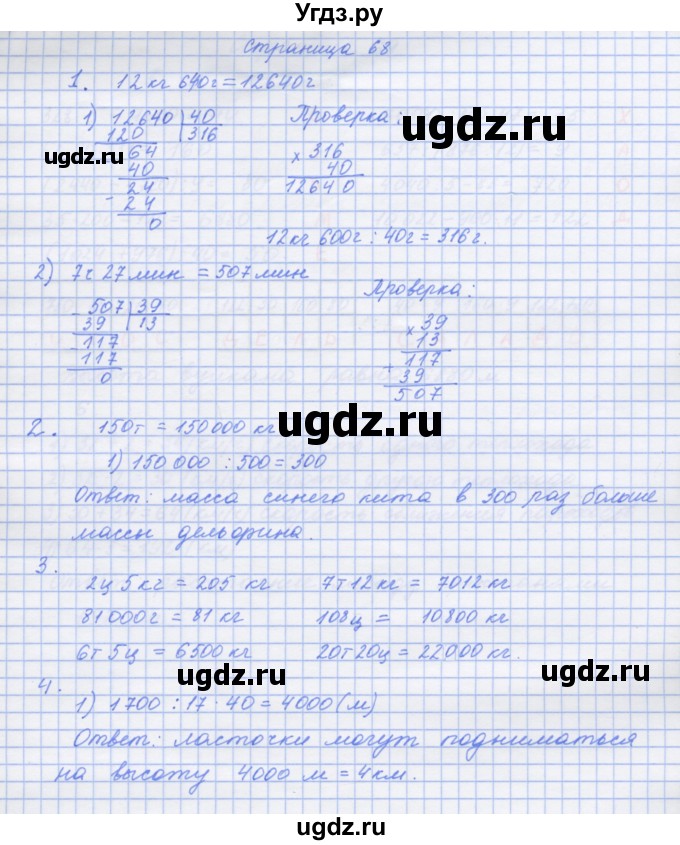 Угдз.ру
Страница 68
1. 12 кг 640 г = 12640 г
1) 12640 | 40
120 | 316
64
40
24
24
0
Проверка:
× 316
40
12640
12 кг 600 г : 40 г = 316 г.
2) 7 ч 27 мин = 507 мин
507 | 39
39 | 13
117
117
0
Проверка:
× 39
13
+ 117
39
507
2. 150 т = 150 000 кг
1) 150 000 : 500 = 300
Ответ: масса синего кита в 300 раз больше
массы дельфина.
3.
2 ц 5 кг = 205 кг 7 т 12 кг = 7012 кг
81 000 г = 81 кг 108 ц = 10800 кг
6 т 5 ц = 6500 кг 20 т 20 ц = 22000 кг.
4.
1) 1700 : 17 · 40 = 4000 (м)
Ответ: ласточки могут подниматься
на высоту 4000 м = 4 км.
ugdz.ru
ugdz.ru
ugdz.ru
ugdz.ru
ugdz.ru
ugdz.ru
ugdz.ru
ugdz.ru
ugdz.ru